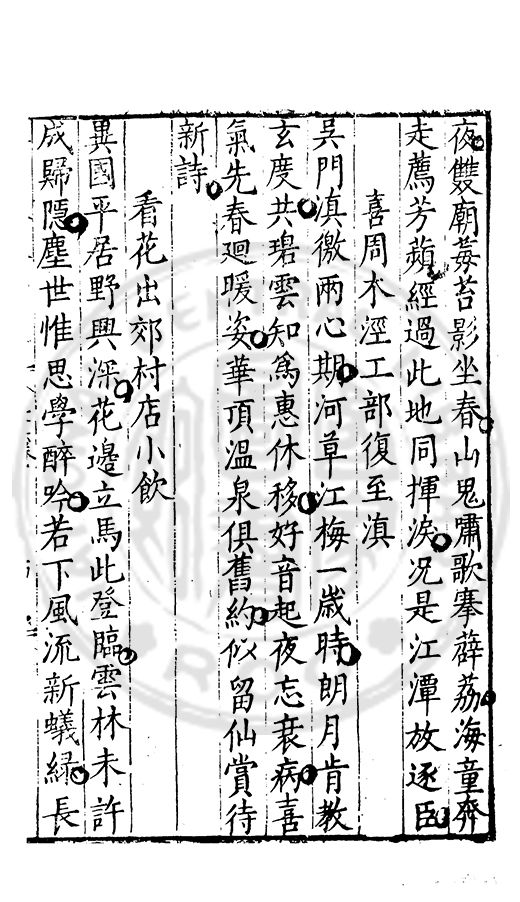 夜雙廟莓苔影坐春山鬼嘯歌搴薜荔海童奔
走薦芳蘋經過此地同揮淚况是江潭放逐臣
喜周木涇工部復至滇
吴門滇徼兩心期河草江梅一歲時朗月肯教
玄度共碧雲知爲惠休移好音起夜忘衰病喜
氣先春廻暖姿華頂溫泉俱舊約似留仙賞待
新詩
看花出郊村店小飲
異國平居野興深花邊立馬此登臨雲林未許
成歸隱塵世惟思學醉吟若下風流新蟻緑長